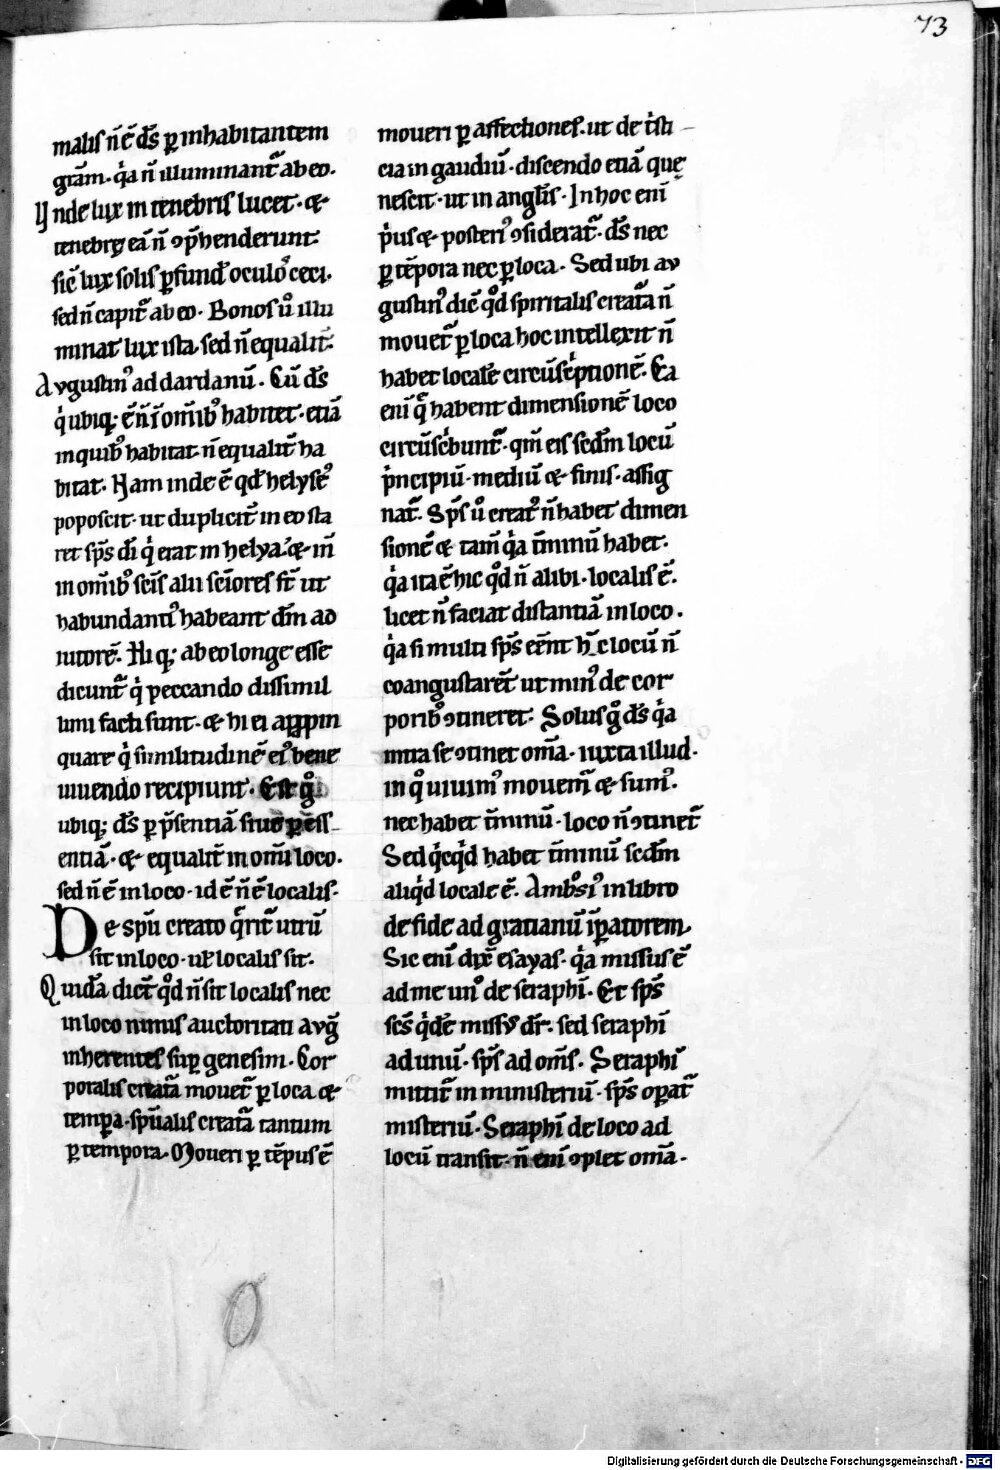 73
malis n̄ ē d̄s ꝑ inhabitantem
gr̄am. q̇a n̄ illuminant᷑ ab eo.
Vnde lux in tenebris lucet. ⁊
tenebrę eā n̄ ꝯp̄henderunt.
sic̄ lux solis ꝑfund᷑ oculos ceci.
sed n̄ capit᷑ ab eo. Bonos u̾ illu
minat lux ista. sed n̄ equalit᷑.
Avgustin᷒ ad dardanū. Cū d̄s
q̇ ubiq; ē n̄ ī om̄ib᷒ habitet. etiā
in quib᷒ habitat n̄ equalit᷑ ha
bitat. Nam inde ē qd̄ helyse᷒
poposcit. ut duplicit᷑ in eo sta
ret sp̄s d̄i q̇ erat in helya. ⁊ in̄
in om̄ib᷒ sc̄is alii sc̄iores st̄ ut
habundanti᷒ habeant dm̄ ad
iutorē. Hi q; ab eo longe esse
dicunt᷑ q̇ peccando dissimil
limi facti sunt. ⁊ hi ei aꝓpin
quare q̇ similitudinē ei᷒ bene
uiuendo recipiunt. Est g̊
ubiq; d̄s ꝑ p̄sentiā siue ꝑ ess
entiā. ⁊ equalit᷑ in om̄i loco.
sed n̄ ē in loco. id ē n̄ ē localis.
De spū creato q̄rit᷑ utrū
sit in loco. ul̄ localis sit.
Quidā dict̄ qd̊ n̄ sit localis nec
in loco nimis auctoritati avg̅
inherentes suꝑ genesim. Cor
poralis creat᷑a mouet᷑ ꝑ loca ⁊
temꝑa. spūalis creat᷑a tantum
ꝑ tempora. Moueri ꝑ tēpus ē
moueri ꝑ affectiones. ut de t̄sti
cia in gaudiū. discendo etiā quę
nescit. ut in angl̄is. In hoc enī
ṗus ⁊ posteri᷒ ꝯsiderat᷑. d̄s nec
ꝑ tēpora nec ꝑ loca. Sed ubi av
gustin᷒ dic̄ qd̊ spiritalis creat᷑a n̄
mouet᷑ ꝑ loca hoc intellexit n̄
habet localē circūsc̄ptionē. Ea
enī q̄ habent dimensionē loco
circūsc̄bunt᷑. qm̄ eis scdm̄ locū
ṗncipiū. mediū ⁊ finis. assig
nat᷑. Sp̄s u̾ creat᷒ n̄ habet dimen
sionē ⁊ tam̄ q̇a t̄minū habet.
q̇a ita ē hic qd̊ n̄ alibi. localis ē.
licet n̄ faciat distantiā in loco.
q̇a si multi sp̄s eēnt hīc locū n̄
coangustaret᷑ ut min᷒ de cor
porib᷒ ꝯtineret. Solus g̊ d̄s q̇a
intra se ꝯtinet om̄a. iuxta illud.
in q̊ uiuim᷒ mouem̄ ⁊ sum᷒.
nec habet t̄minū. loco n̄ ꝯtinet᷑
Sed q̇cq̇d habet t̄minū scdm̄
aliq̇d locale ē. Ambrosi᷒ in libro
de fide ad gratianū īꝑatorem.
Sic enī dix̄ esayas. q̇a missus ē
ad me un᷒ de seraphī. Et sp̄s
sc̄s q̇dē missus dr̄. sed seraphī
ad unū. sp̄s ad om̄s. Seraphī
mittit᷑ in ministeriū. sp̄s oꝑat᷑
misteriū. Seraphī de loco ad
locū transit. n̄ enī ꝯplet om̄a.
Digitalisierung gefördert durch die Deutsche Forschungsgemeinschaft - DFG